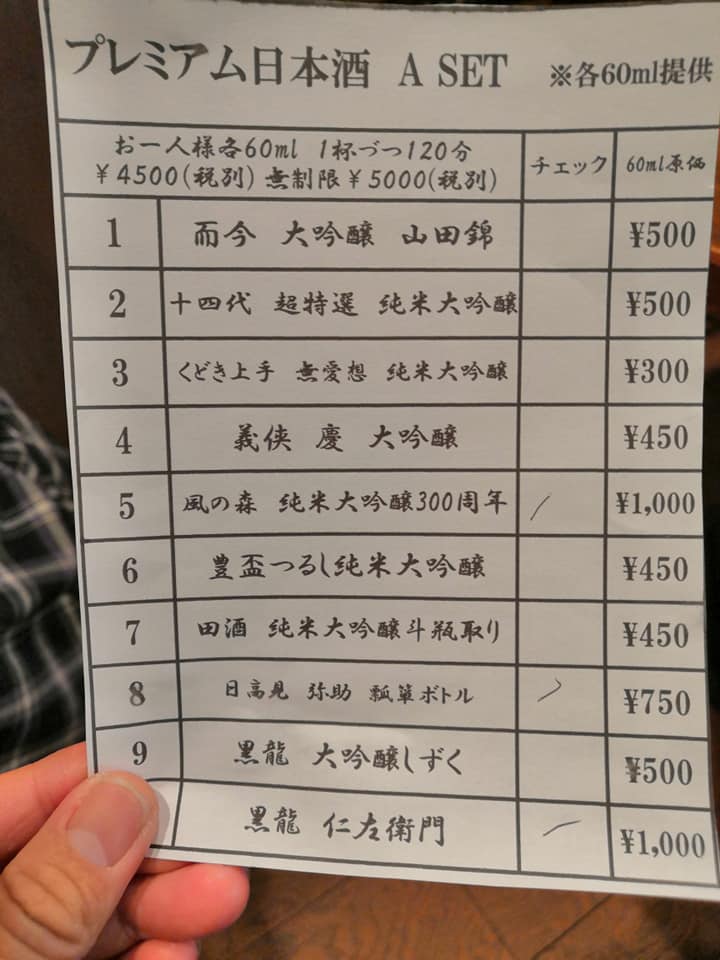 プレミアム日本酒 A SET ※各60ml提供
お一人様各60ml 1杯づつ120分
¥4500(税別) 無制限¥5000(税別)
チェック 60ml原価
1 而今 大吟醸 山田錦 ¥500
2 十四代 超特選 純米大吟醸 ¥500
3 くどき上手 無愛想 純米大吟醸 ¥300
4 義侠 慶 大吟醸 ¥450
5 風の森 純米大吟醸300周年 ¥1,000
6 豊盃つるし純米大吟醸 ¥450
7 田酒 純米大吟醸斗瓶取り ¥450
8 日高見 弥助 瓢箪ボトル ¥750
9 黒龍 大吟醸しずく ¥500
黒龍 仁左衛門 ¥1,000